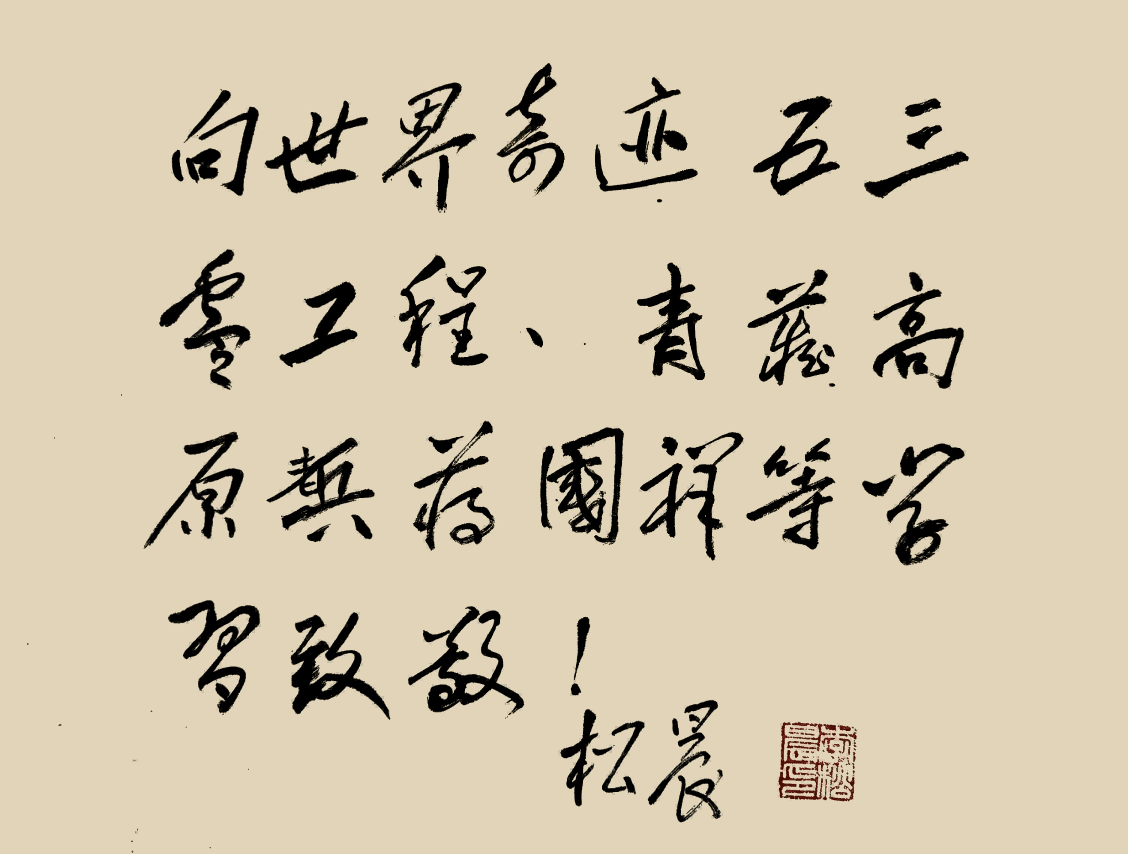 向世界奇迹 五三
零工程、青藏高
原蒋國祥等学
習致敬!
松晨
李松晨印